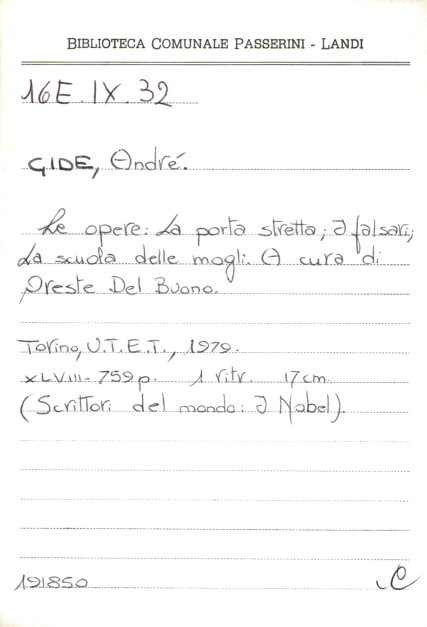 BIBLIOTECA COMUNALE PASSERINI - LANDI
16E.IX.32
GIDE, André.
Le opere: La porta stretta; I falsari;
La scuola delle mogli. A cura di
Oreste Del Buono.
Torino, U.T.E.T., 1979.
XLVIII-759p. 1 ritr. 17cm.
(Scrittori del mondo: I Nobel).
191850